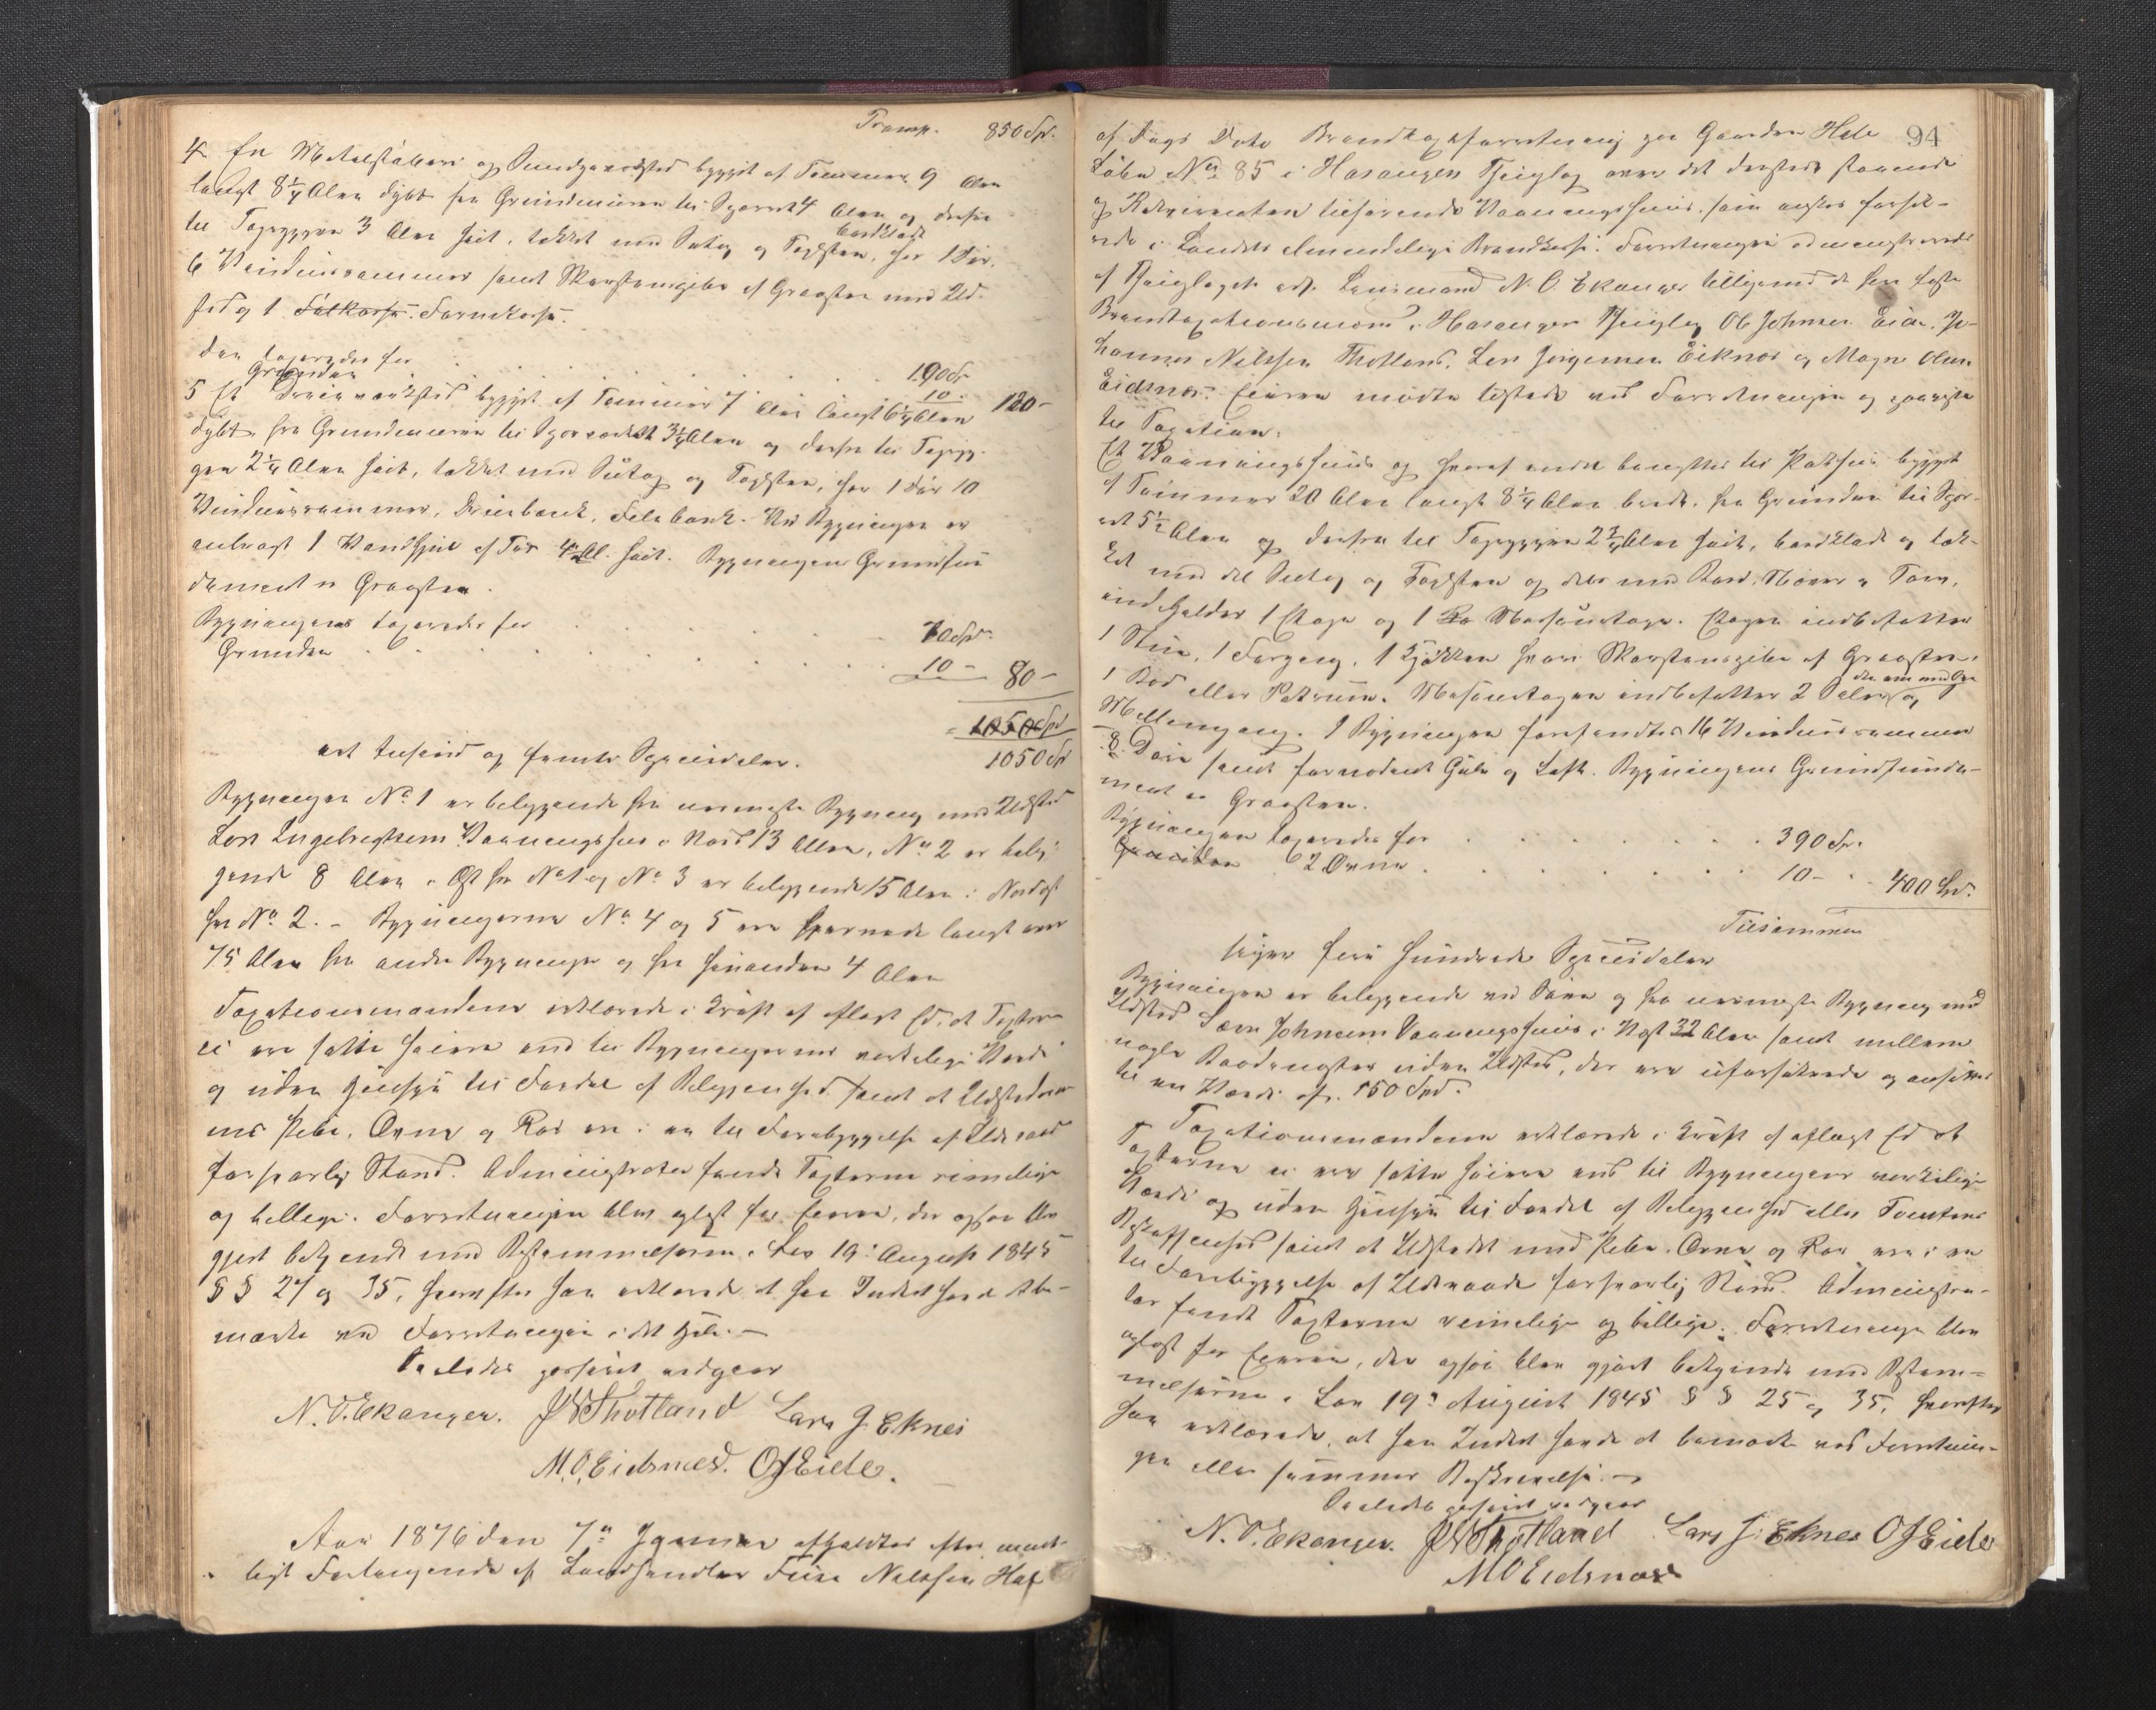 Transp. 850 Spd.
4 En Metalstøberi og Smedgværksted bygget af Tømmer 9 Alen
langt 8 1/4 Alen dybt fra Grundmuren til Sperret 4 Alen og derfra
til Tagryggen 3 Alen høit, tækket med Sutag og Taghsten, bordklædt har 1 Dør,
6 Vinduesrammer samt Skorstenspibe af Graasten med Ild-
sted og 1 Fælkasse. Farvekasse.
den taxeredes for 100 Spd
Grunden 10 - 120 -
5 Et Dreierværksted bygget af Tømmer 7 Alen langt 6 1/4 Alen
dybt, fra Grundmuren til Sperreværket 3 1/4 Alen og derfra til Tagryg-
gen 2 1/4 Alen høit, tækket med Sutag og Taghsten, har 1 Dør 10
Vinduesrammer, Dreiebænk, Filebænk. Ved Bygningen er
anbragt 1 Vandhjul af Træ 4 Al. høit. Bygningens Grundfun
dament er Graasten.
Bygningen taxeredes for 70 Spd.
Grunden 10 - 80 -
1050 Spd
1050 Spd
et tusind og femti Speciedaler.
Bygningen No 1 er beliggende fra nærmeste Bygning med Ildsted
Lars Engebregtsens Vaaningshus i Nord 13 Allen, No 2 er belig-
gende 8 Alen i Øst fra No 1 og No 3 er beliggende 15 Alen i Nordost
fra No 2. - Bygningerne No 4 og 5 ere fjernede langt over
75 Alen fra andre Bygninger og fra hinanden 4 Alen
Taxationsmændene erklærede i Kraft af aflagt Ed, at Taxterne
ei ere satte høiere end til Bygningernes virkelige Værdi
og uden Hensyn til Fordel af Beliggenhed samt at Ildstederne
med Pibe, Ovne og Rør ere i en til Forebyggelse af Ildsvaade
forsvarlig Stand. Administrator fandt Taxterne rimelige
og billige. Forretningen blev oplæst for Eieren, der ogsaa blev
gjort bekjendt med Bestemmelserne i Lov 19 August 1845
§ § 27 og 35, hvorefter han erklærede at han Intet havde at be-
mærke ved Forretningen i det Hele. -
Saaledes passeret vedgaaes
N. O. Ekanger. J N Thotland Lars J. Eknes
M. O. Eidsnes. O J Eide.
Aar 1876 den 7de Januar afholdtes efter mundt-
ligt Forlangende af Landhandler Fiin Nielsen Hal
94
af Dags Dato Brandtaxtforretning paa Gaarden Hele
Løbe No 85 i Hosanger Thinglag over det dersteds staaende
og Rekvirenten tilhørende Vaaningshuus, som ønskes forsik-
rede i Landets almindelige Brandkasse. Forretningen administreredes
af Thinglagets edf. Lensmand N. O. Ekanger tilligemed de fire faste
Brandtaxationsmænd i Hosanger Thinglag Ole Johnsen Eide, Jo-
hannes Nilssen Thotland, Lars Jørgensen Eiknes og Magne Olsen
Eidsnes. Eieren mødte tilstede ved Forretningen og paaviste
til Taxation:
Et Vaaningshuus og hvoraf endel benyttes til Pakhuus bygget
af Tømmer 20 Alen langt 8 1/4 Alen bredt, fra Grunden til Sper-
ret 5 1/2 Alen og derfra til Tagryggen 2 3/4 Alen høit, bordklædt og tæk-
ket med del Sutag og Taghsten og dels med Bord, Næver og Torv,
indeholder 1 Etage og 1 Mesanetage. Etagen indbefatter
1 Stue, 1 Forgang, 1 Kjøkken hvori Skorstenspibe af Graasten,
1 Bod eller Pakrum. Mesanetagen indbefatter 2 Sale og 1
Mellemgang. I Bygningen forefandtes 16 Vinduesrammer
8 Døre samt fornødent Gulv og Loft. Bygningens Grundfunda-
ment er Graasten.
Bygningen taxeredes for 390 Spd.
Grunden 2 Ovne 10 - 400 Spd.
Tilsammen
siger fire Hundrede Speciedaler
Bygningen er beliggende ved Søen og fra nærmeste Bygning med
Ildsted Lars Johnsens Vaaningshuus i Vest 32 Alen samt mellem
nogle Baadenøster uden Ildsted, der ere uforsikrede og ansættes
til en Værdi af 150 Spd.
Taxationsmændene erklærede i Kraft af aflagt Ed at
Taxterne ei ere satte høiere end til Bygningens virkelige
Værdi og uden Hensyn til Fordel af Beliggenhed eller Tomtens
Beskaffenhed samt at Ildstedet med Pibe, Ovne og Rør ere i en
til Forebyggelse af Ildsvaade forsvarlig Stand. Administra-
tor fandt Taxterne rimelige og billige. Forretningen blev
oplæst for Eieren, der ogsaa blev gjort bekjendt med Bestem-
melserne i Lov 19 August 1845 § § 25 og 35, hvorefter
han erklærede, at han Intet havde at bemærke ved Forretnin-
gen eller sammes Beskrivelse. -
Saaledes passeret vedgaaes
N. O. Ekanger. J N Thotland Lars J. Eknes O J Eide
M O Eidsnes